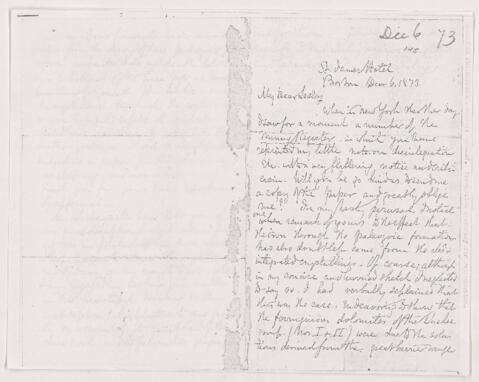 Dec 6 73
St. James Hotel
Boston Dec. 6, 1873.
My Dear Lesley
When in New York the other day
I saw for a moment a number of the
Mining Register, in which you have
reprinted my little note on disintegration
etc. with a very flattering notice and criti-
cism. Will you be so kind as to send me
a copy of the paper and greatly oblige
me? In my hasty perusal I noted
remark of yours to the effect that
the iron through the palaeozoic formation
has also doubtless come from the dis-
integrated crystallines. Of course, altho
in my concise and hurried sketch I neglected
to say so. I had verbally explained that
that was the case. Endeavoring to show that
the ferruginous dolomites of the Quebec
group (Nos. I & II) were due to the solu-
tions derived from the great barrier range